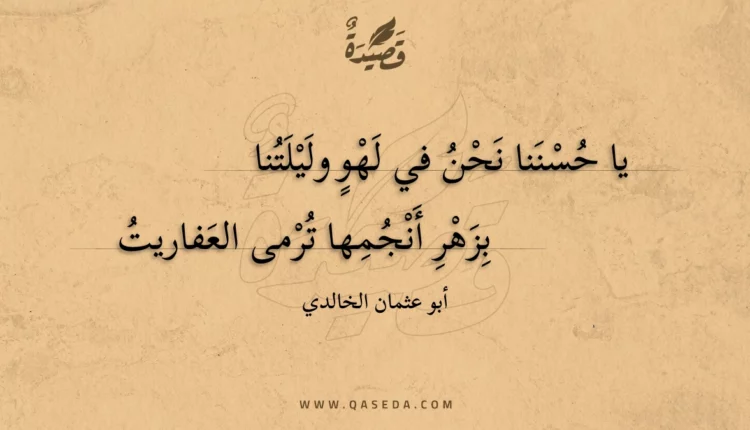 قَصِيْدَةٌ
يا حُسْنَنا نَحْنُ في لَهْوٍ ولَيْلَتُنا
بِزَهْرِ أَنْجُمِها تُرْمى العَفاريتُ
أبو عثمان الخالدي
WWW.QASEDA.COM